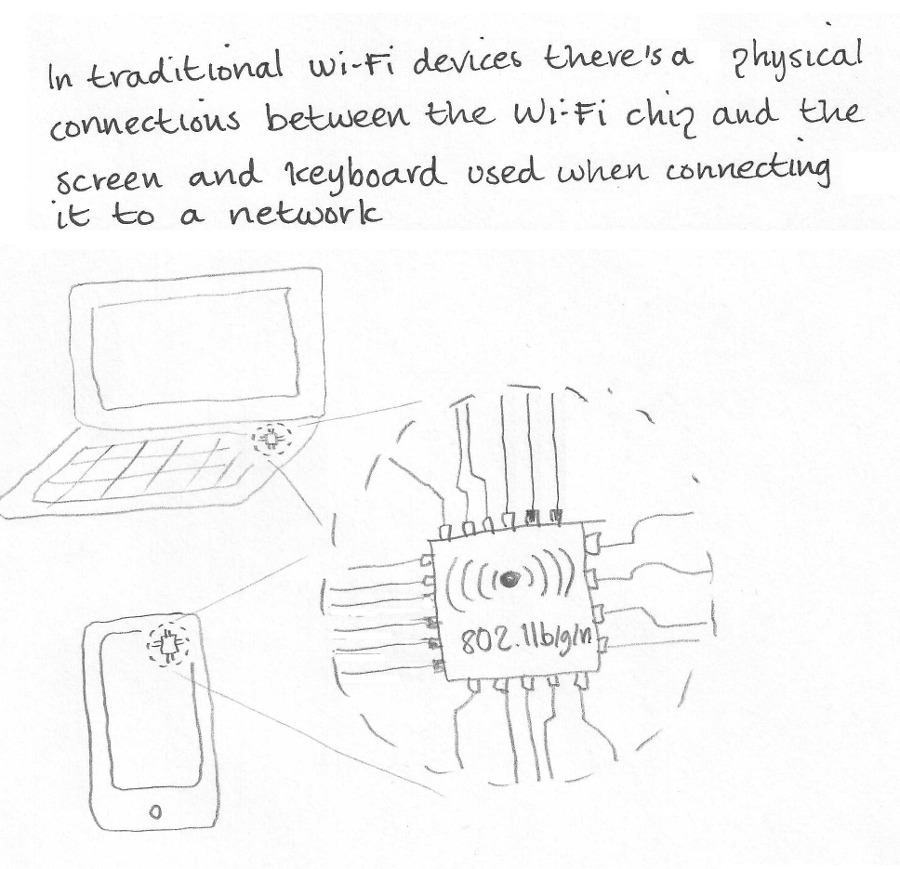 In traditional Wi-Fi devices there's a physical
connections between the Wi-Fi chip and the
screen and keyboard used when connecting
it to a network
802.11b/g/n